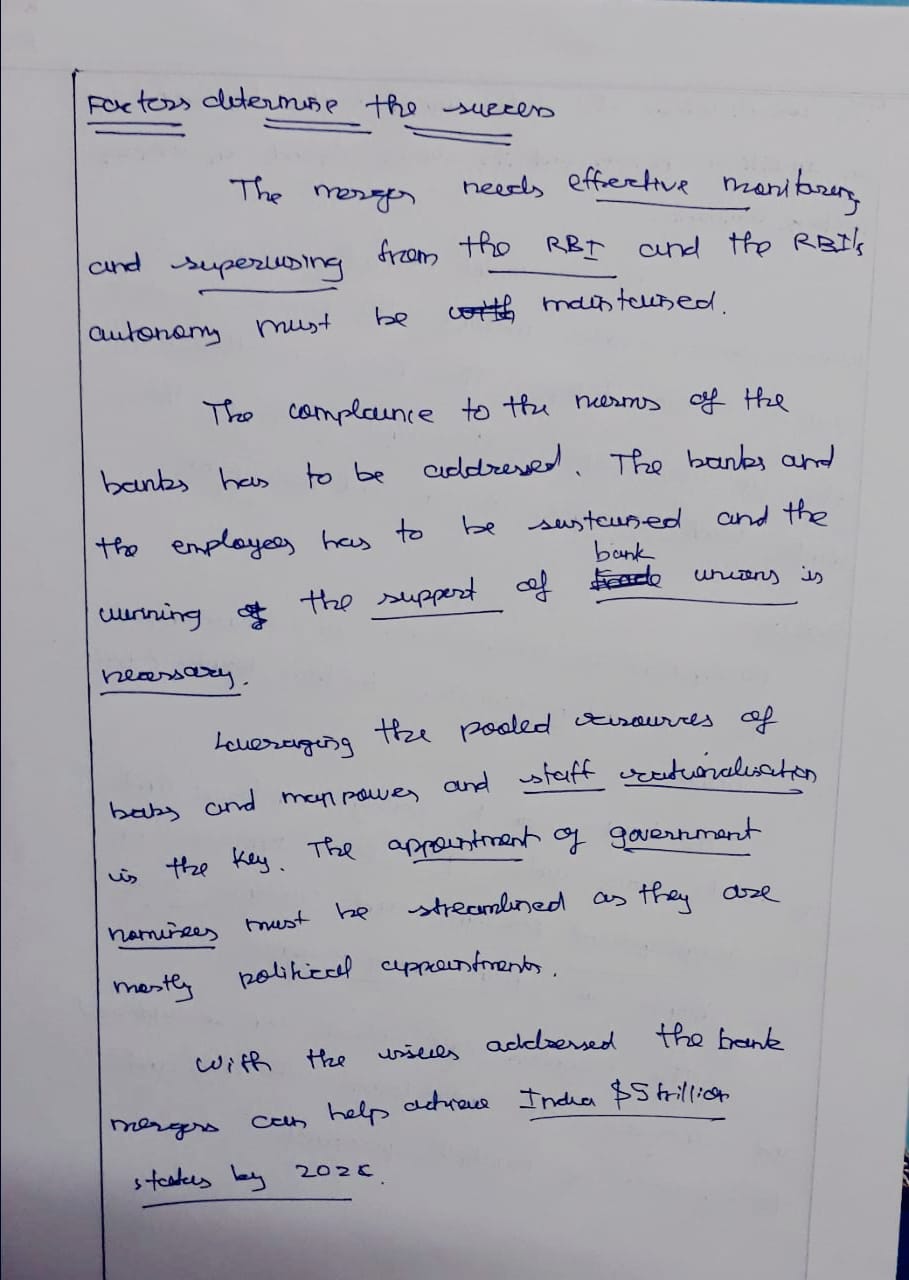 Factors determine the success
The merger needs effective monitoring
and supervising from the RBI and the RBI's
autonomy must be with maintained.
The complaince to the norms of the
banks has to be addressed. The banks and
the employees has to be sustained and the
bank
winning of the support of trade unions is
necessary.
Leveraging the pooled resources of
and manpower and staff rationalisation
is the key. The appointment of government
nominees must be streamlined as they are
mostly political appointments.
With the issues addressed the bank
mergers can help achieve India $5 trillion
status by